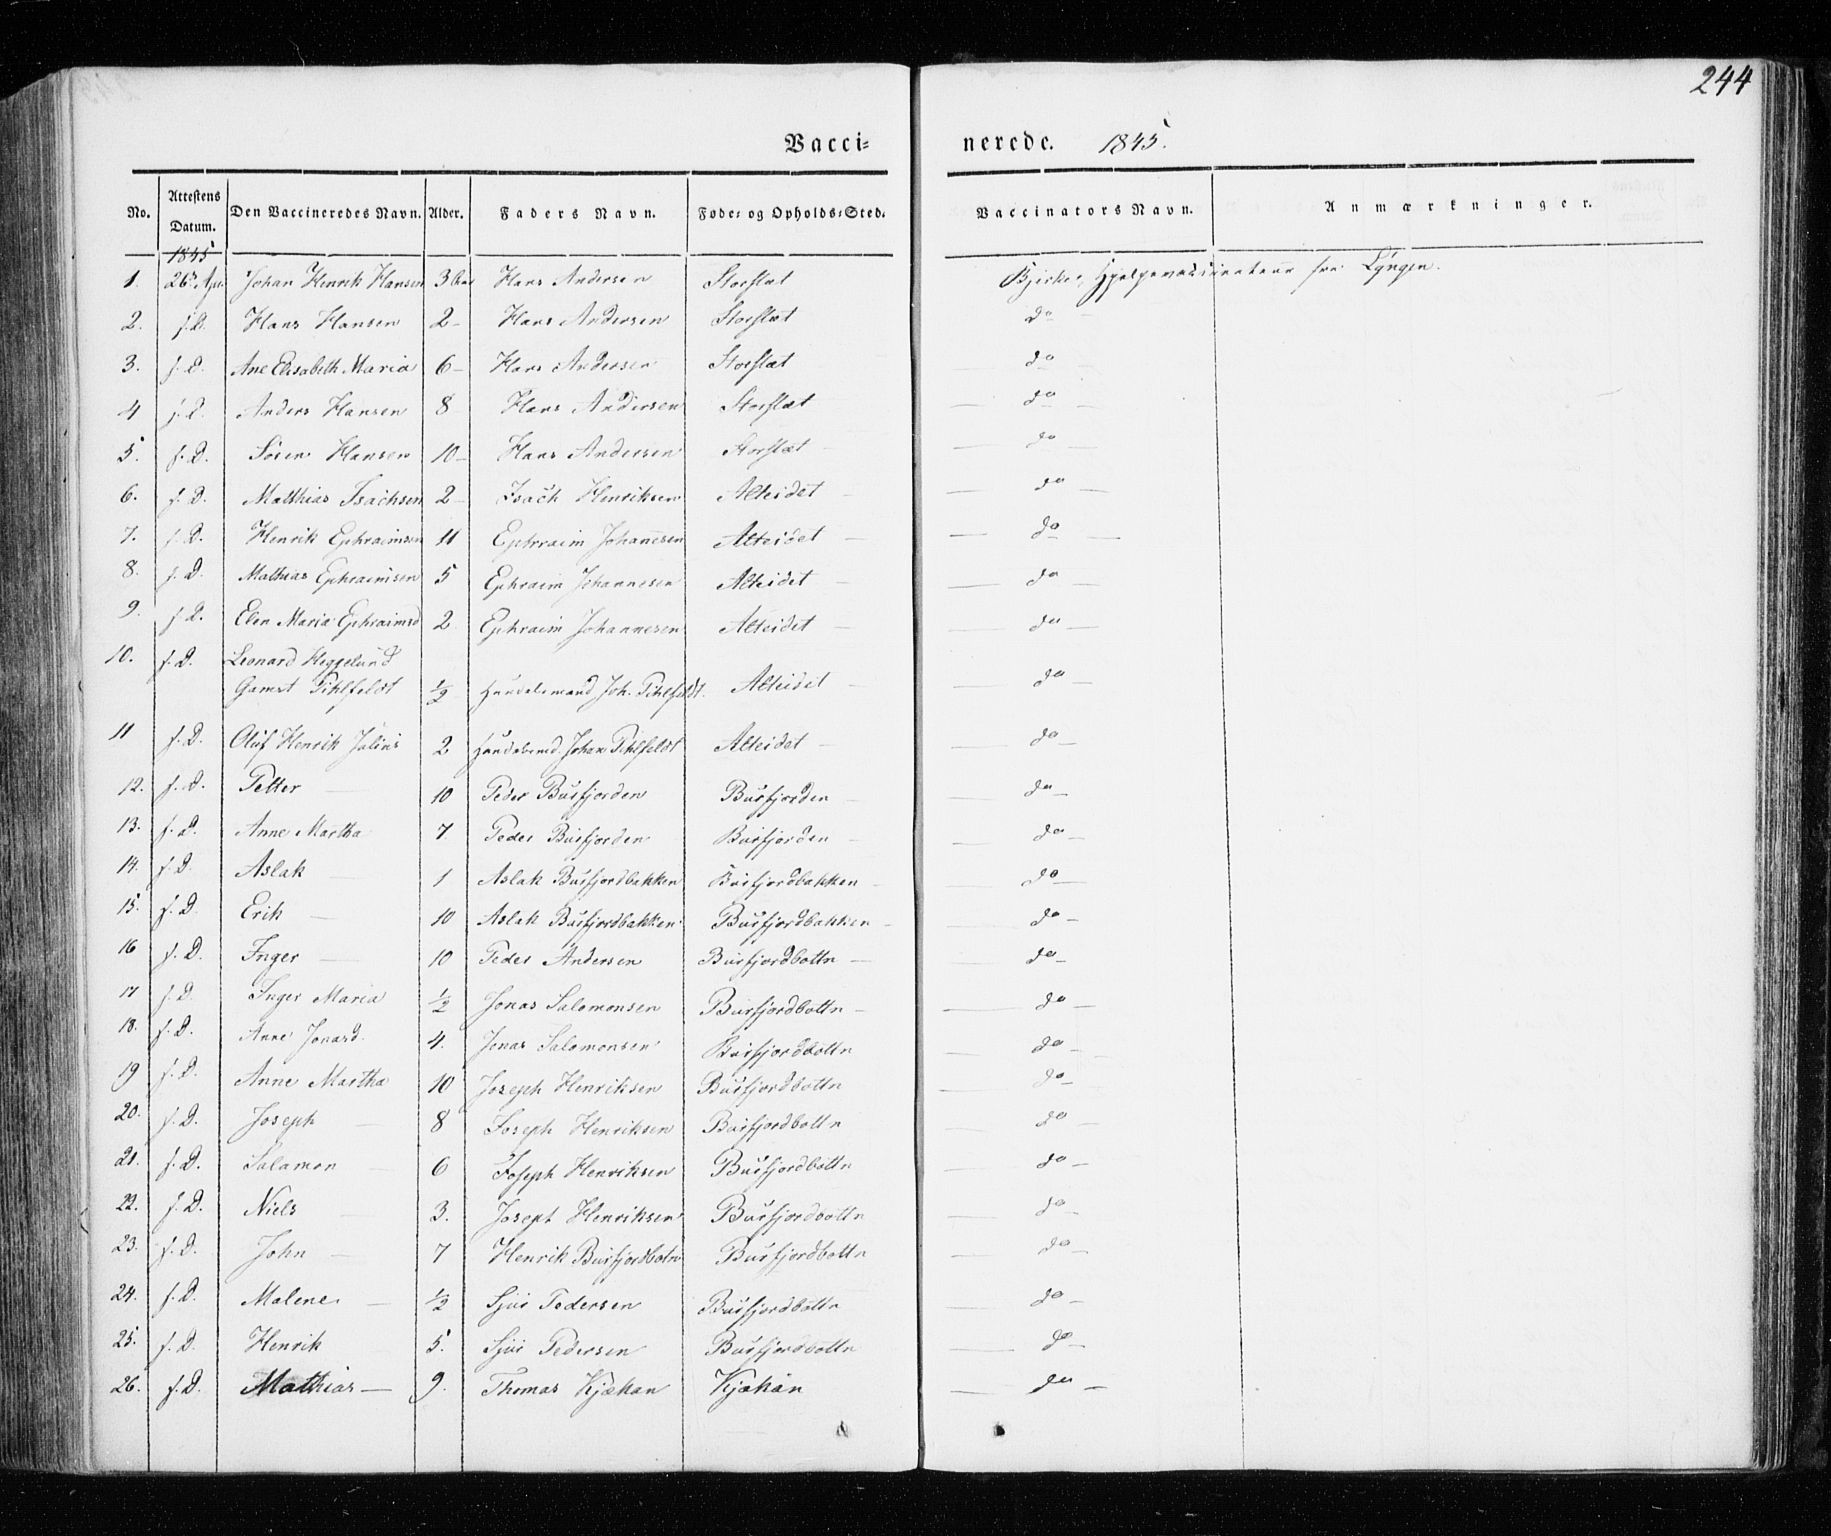 244
Vacci= nerede. 1845.
No. Attestens Datum. Den Vaccineredes Navn. Alder. Faders Navn. Føde= og Opholds=Sted. Vaccinators Navn. Anmærkninger.
1845
1. 26de Apr. Johan Henrik Hansen 3 Hans Andersen Storslæt Bjerke, Hjelpevaksinateur fra Lyngen.
2. s.D. Hans Hansen 2 – Hans Andersen Storslæt do –
3. s.D. Ane Elisabeth Maria 6 – Hans Andersen Storslæt do –
4 s.D. Anders Hansen 8 Hans Andersen Storslæt – do –
5. s.D. Søren Hansen 10 – Hans Andersen Storslæt – do –
6. s.D. Matthias Isachsen 2 – Isach Henriksen Alteidet – do –
7. s.D. Henrik Ephraimsen 11 Ephraim Johanesen Alteidet – do –
8. s.D. Mathias Ephraimsen 5 Ephraim Johannesen Alteidet – do –
9. s.D. Elen Maria Ephraimsd 2 Ephraim Johannesen Alteidet – do –
10. s.D. Leonard Heggelund
Gamst Pihlfeldt ½ Handelsmand Joh. Pihlfeldt. Alteidet – do –
11 s.D. Oluf Henrik Julius 2 Handelsmd. Johan Pihlfeldt Alteidet – do –
12. s.D. Petter – 10 Peder Burfjorden Burfjorden – do –
13. s.D. Anne Martha 7 Peder Burfjorden Burfjorden – do –
14. s.D. Aslak – 1 Aslak Burfjordbakken Burfjordbakken – do –
15. s.D. Erik – 10 Aslak Burfjordbakken Burfjordbakken – do –
16 s.D. Inger – 10 Peder Andersen Burfjordbottn – do –
17 s.D. Inger Maria ½ Jonas Salomonsen Burfjordbottn – do –
18. s.D. Anne Jonasd. 4. Jonas Salomonsen Burfjordbottn – do –
19 s.D. Anne Martha 10 Joseph Henriksen Burfjordbottn – do –
20. s.D. Joseph – 8 Joseph Henriksen Burfjordbottn – do –
21. s.D. Salamon – 6 Joseph Henriksen Burfjordbottn – do –
22. s.D. Niels – 3. Joseph Henriksen Burfjordbottn – do –
23. s.D. John – 7 Henrik Burfjordbotn Burfjordbottn – do –
24. s.D. Malene – ½ Sjur Pedersen Burfjordbottn – do –
25. s.D. Henrik 5. Sjur Pedersen Burfjordbottn – do –
26. s.D. Mathias – 9. Thomas Kjækan Kjækan – do –